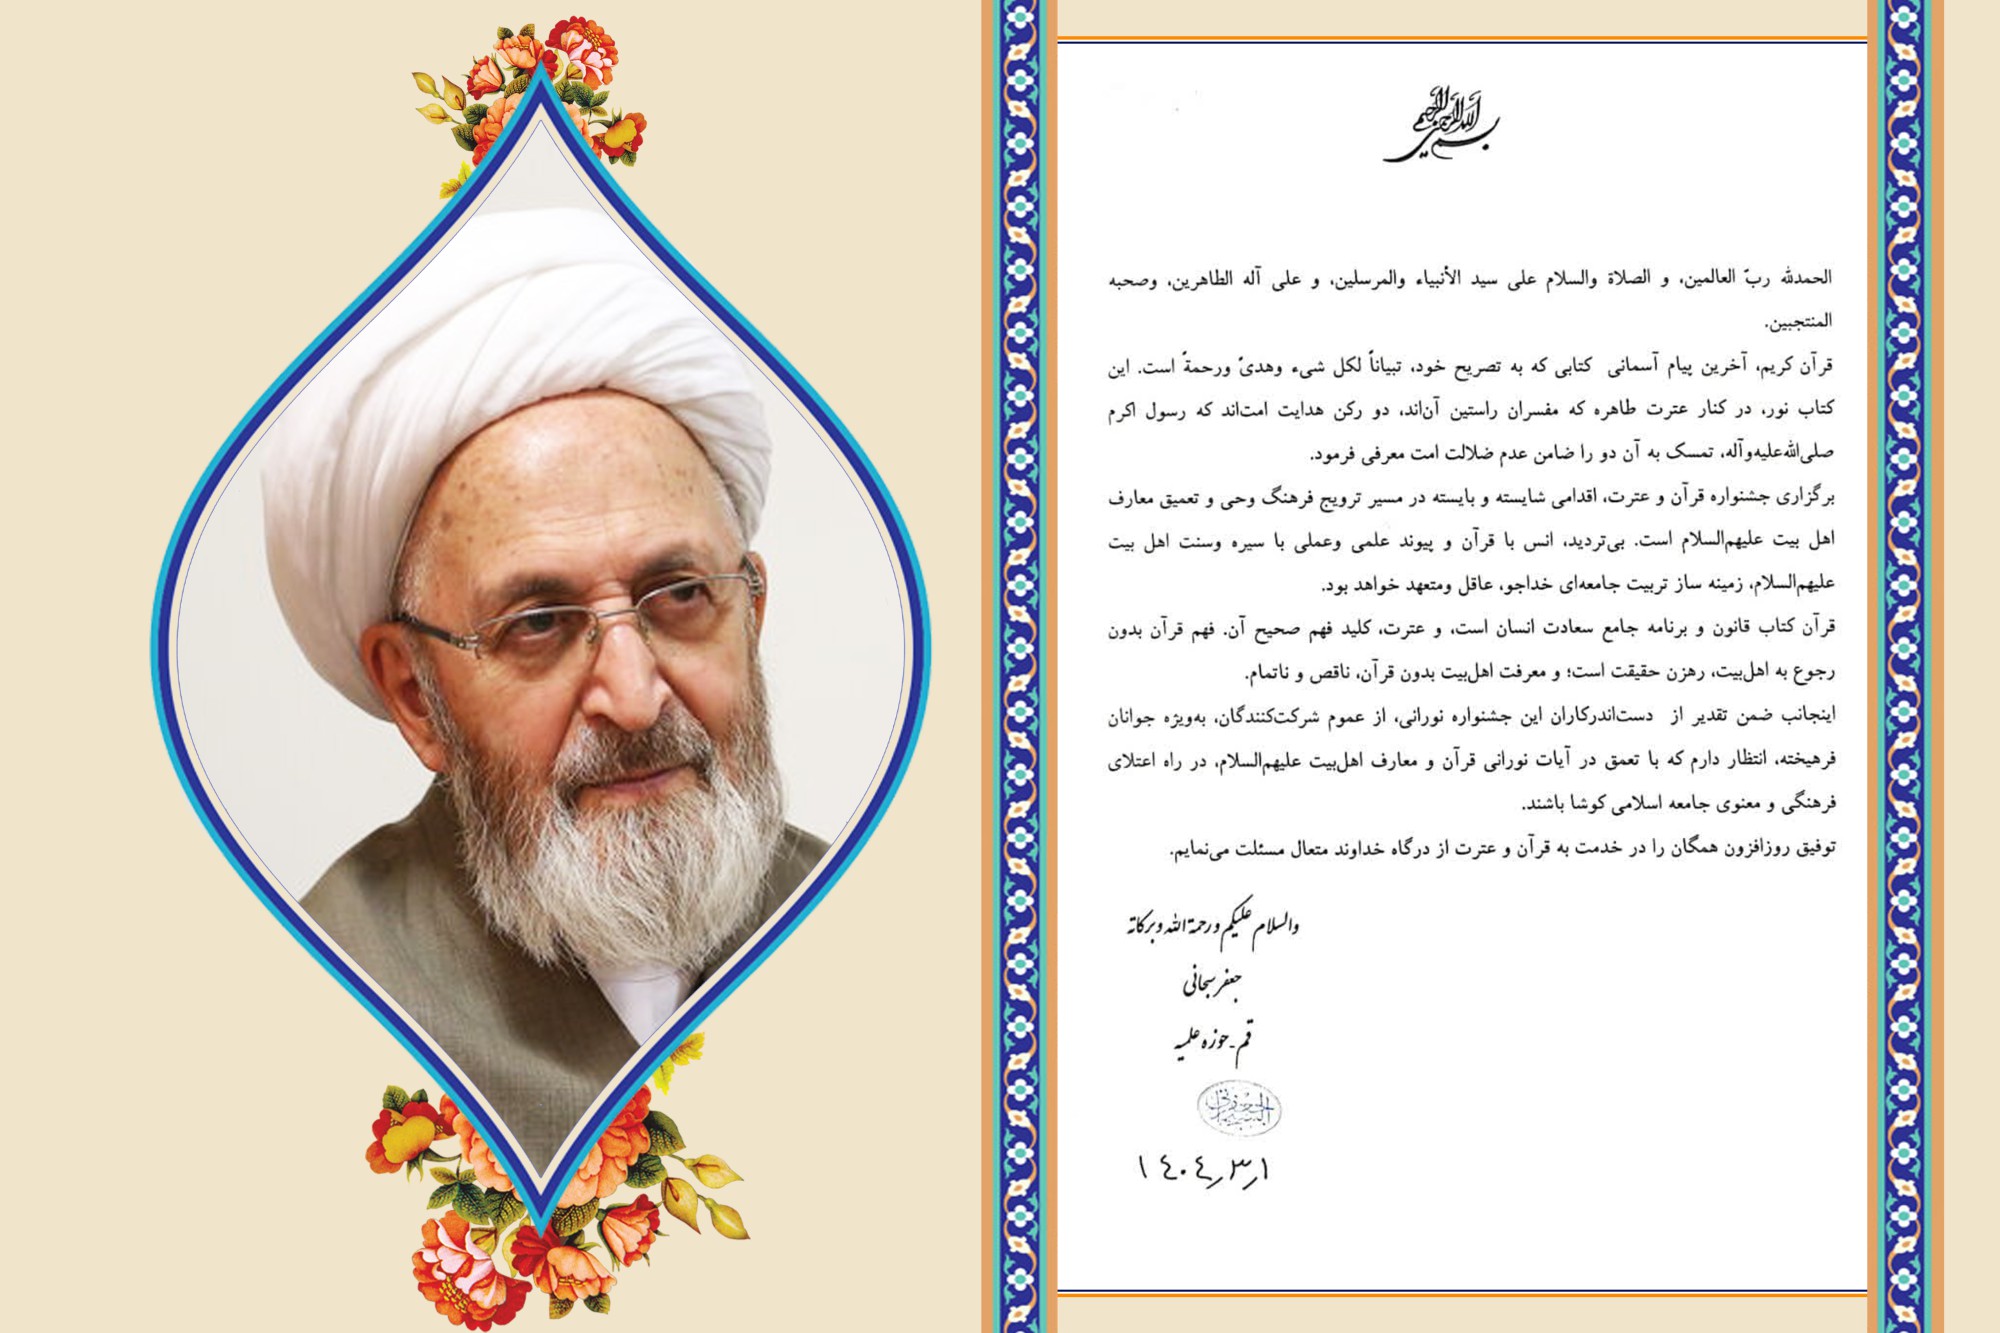 بسم الله الرحمن الرحیم
الحمدلله ربّ العالمین، و الصلاة والسلام علی سید الأنبیاء والمرسلین، و علی آله الطاهرین، وصحبه
المنتجبین.
قرآن کریم، آخرین پیام آسمانی کتابی که به تصریح خود، تبیاناً لکل شیء وهدیً ورحمةً است. این
کتاب نور، در کنار عترت طاهره که مفسران راستین آن‌اند، دو رکن هدایت امت‌اند که رسول اکرم
صلی‌الله‌علیه‌وآله، تمسک به آن دو را ضامن عدم ضلالت امت معرفی فرمود.
برگزاری جشنواره قرآن و عترت، اقدامی شایسته و بایسته در مسیر ترویج فرهنگ وحی و تعمیق معارف
اهل بیت علیهم‌السلام است. بی‌تردید، انس با قرآن و پیوند علمی وعملی با سیره وسنت اهل بیت
علیهم‌السلام، زمینه ساز تربیت جامعه‌ای خداجو، عاقل ومتعهد خواهد بود.
قرآن کتاب قانون و برنامه جامع سعادت انسان است، و عترت، کلید فهم صحیح آن. فهم قرآن بدون
رجوع به اهل‌بیت، رهزن حقیقت است؛ و معرفت اهل‌بیت بدون قرآن، ناقص و ناتمام.
اینجانب ضمن تقدیر از دست‌اندرکاران این جشنواره نورانی، از عموم شرکت‌کنندگان، به‌ویژه جوانان
فرهیخته، انتظار دارم که با تعمق در آیات نورانی قرآن و معارف اهل‌بیت علیهم‌السلام، در راه اعتلای
فرهنگی و معنوی جامعه اسلامی کوشا باشند.
توفیق روزافزون همگان را در خدمت به قرآن و عترت از درگاه خداوند متعال مسئلت می‌نمایم.
والسلام علیکم ورحمة الله وبرکاته
جعفر سبحانی
قم - حوزه علمیه
۱۴۰۴٫۳٫۱